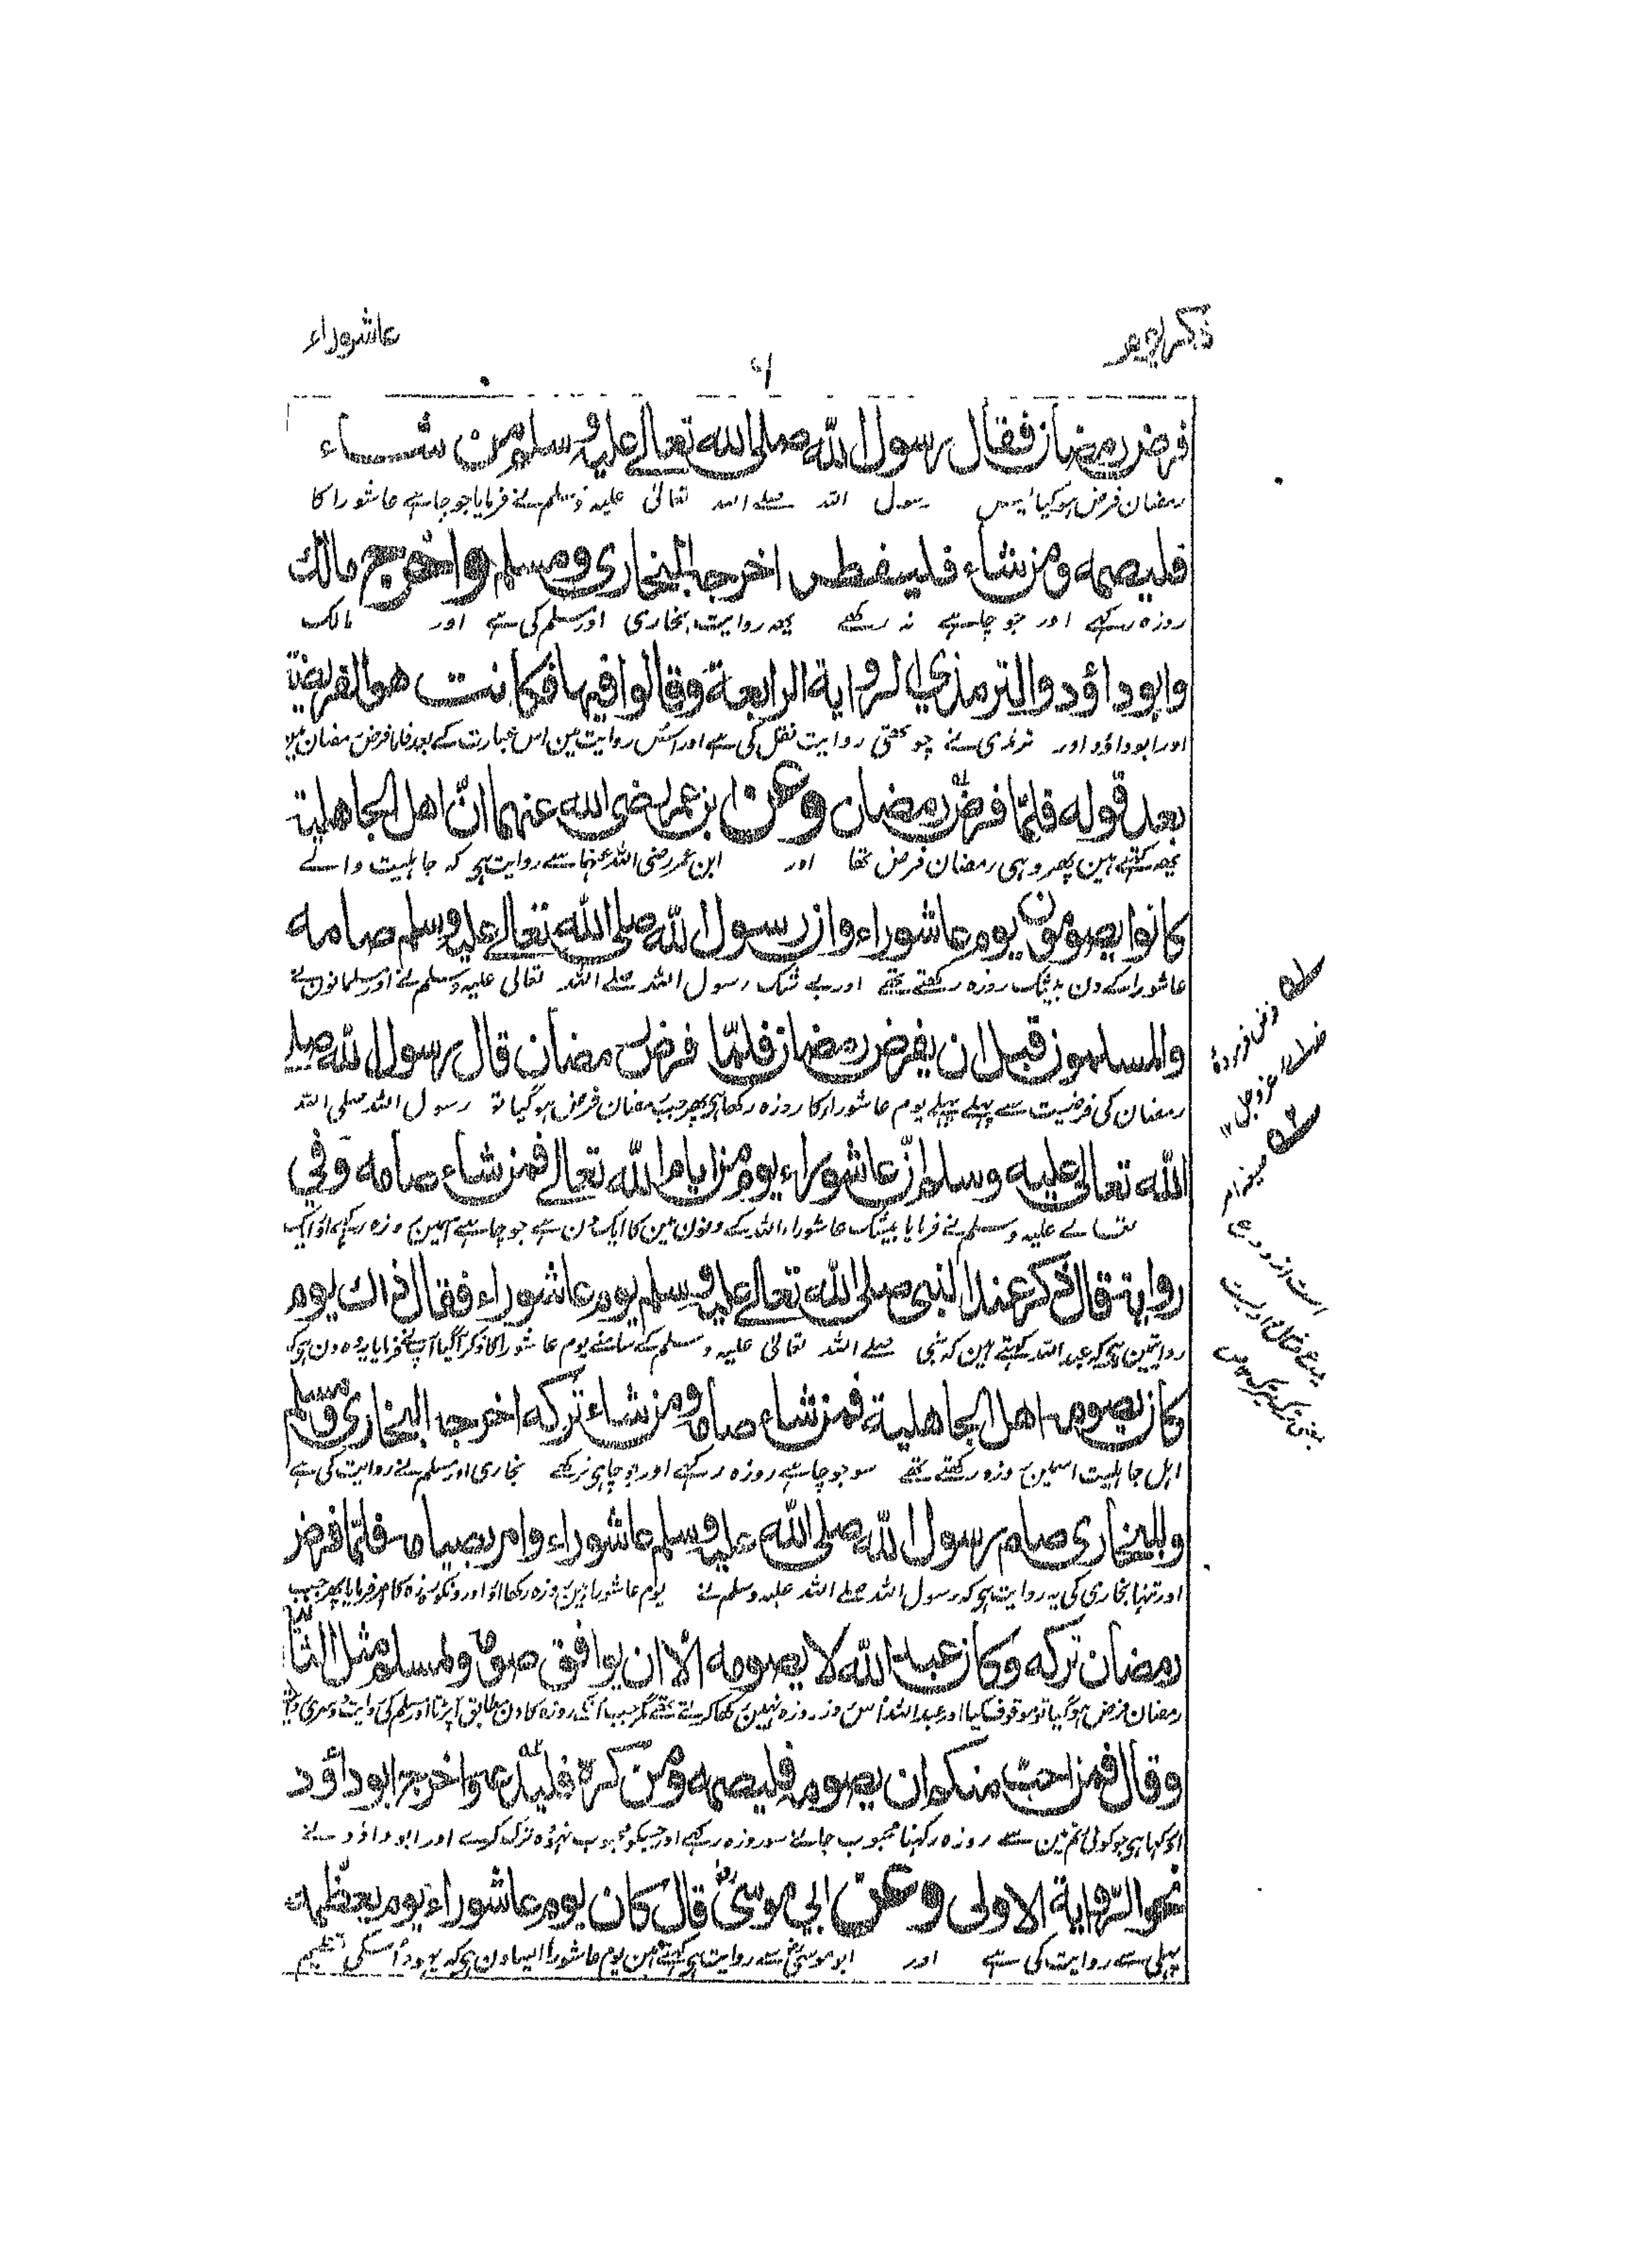 ذكر يوم
عاشوراء
۶
فرض رمضان فقال رسول الله صلى الله تعالى عليه وسلم من شاء
رمضان فرض ہوگیا پس رسول اللہ صلے اللہ تعالیٰ علیہ وسلم نے فرمایا جو چاہے عاشورا کا
فليصمه ومن شاء فليفطر اخرجه البخاري ومسلم واخرج مالك
روزہ رکھے اور جو چاہے نہ رکھے یہہ روایت بخاری اور مسلم کی ہے اور مالک
وابوداؤد والترمذي الرواية الرابعة وقالوا فيها فكانت هو الفريضة
اور ابوداؤد اور ترمذی نے چوتھی روایت نقل کی ہے اور اس روایت مین اس عبارت کے بعد فلما فرض رمضان
بعد قوله فلمّا فرض رمضان وعن ابن عمر رضى الله عنهما انّ اهل الجاهلية
یہہ کہتے ہین پھر وہی رمضان فرض تھا اور ابن عمر رضی اللہ عنہما سے روایت ہی کہ جاہلیت والے
كانوا يصومون يوم عاشوراء وان رسول الله صلى الله تعالى عليه وسلم صامه
عاشورا کے دن بیشک روزہ رکھتے تھے اور بے شک رسول اللہ صلے اللہ تعالی علیہ وسلم نے اور مسلمانون نے
والمسلمون قبل ان يفرض رمضان فلمّا فرض رمضان قال رسول الله صلى
رمضان کی فرضیت سے پہلے پہلے یوم عاشوراء کا روزہ رکھا ہی پھر جب رمضان فرض ہوگیا تو رسول اللہ صلی اللہ
الله تعالى عليه وسلم انّ عاشوراء يوم من ايام الله تعالى فمن شاء صامه وفي
تعالے علیہ وسلم نے فرمایا بیشک عاشوراء اللہ کے دنون مین کا ایک دن ہے جو چاہے اسمین روزہ رکھے اور ایک
رواية قال ذكر عند النبي صلى الله تعالى عليه وسلم يوم عاشوراء فقال ذاك يوم
روایتمین ہی کہ عبد اللہ کہتے ہین کہ نبی صلے اللہ تعالیٰ علیہ وسلم کے سامنے یوم عاشورا کا ذکر آگیا آپنے فرمایا یہ وہ دن ہی کہ
كان يصومه اهل الجاهلية فمن شاء صامه ومن شاء تركه اخرجه البخاري ومسلم
اہل جاہلیت اسمین روزہ رکھتے تھے سو جو چاہے روزہ رکھے اور جو چاہی نرکھے بخاری اور مسلم نے روایت کی ہے
وللبخاري صام رسول الله صلى الله عليه وسلم عاشوراء وامر بصيامه فلمّا فرض
اور تنہا بخاری کی یہ روایت ہی کہ رسول اللہ صلے اللہ علیہ وسلم نے یوم عاشورا مین روزہ رکھا اور اورونکو روزہ کا امر فرمایا پھر جب
رمضان تركه وكان عبد الله لا يصومه الا ان يوافق صومه ولمسلم مثل الثانية
رمضان فرض ہوگیا تو موقوف کیا اور عبداللہ اس روز روزہ نہین رکھا کرتے تھے مگر جب انکے روزہ کا دن مطابق آپڑتا اور مسلم کی روایت دوسری
وقال فمن احب منكم ان يصومه فليصمه ومن كره فليدعه واخرج ابوداؤد
اور کہا ہی جو کوئی تم مین سے روزہ رکھنا محبوب جانے سو روزہ رکھے اور جسکو محبوب نہو وہ ترک کرے اور ابوداؤد نے
نحو الرواية الاولى وعن ابي موسىؓ قال كان يوم عاشوراء يوم يعظمه
پہلی سے روایت کی ہے اور ابوموسیٰ سے روایت ہی کہتے ہین یوم عاشورا ایسا دن ہی کہ یہود اسکی تعظیم
فرض فرمودۂ
عز و جل ۱۲
است از ودع